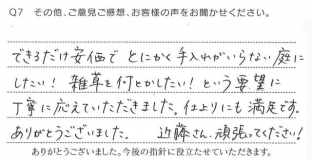 Q7 その他、ご意見ご感想、お客様の声をお聞かせください。
できるだけ安価で とにかく手入れがいらない庭に
したい! 雑草を何とかしたい! という要望に
丁寧に応えていただきました。仕上りにも満足です。
ありがとうございました。 近藤さん、頑張ってください!
ありがとうございました。今後の指針に役立たせていただきます。